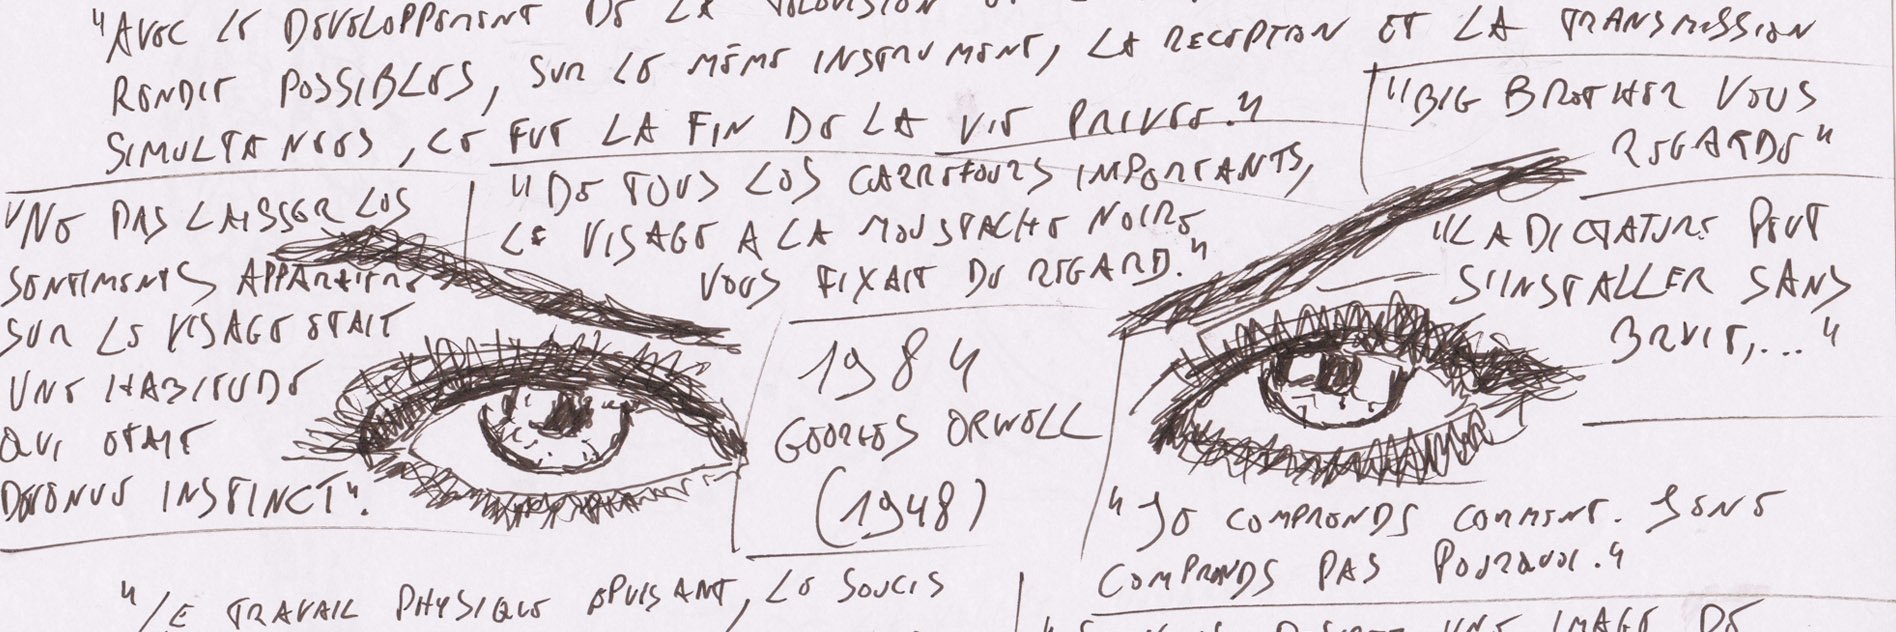 "AVEC LE DEVELOPPEMENT DE LA TELEVISION
RENDIT POSSIBLES, SUR LE MÊME INSTRUMENT, LA RECEPTION ET LA TRANSMISSION
SIMULTANEES, CE FUT LA FIN DE LA VIE PRIVEE."
"BIG BROTHER VOUS
REGARDE"
"NE PAS LAISSER LES
SENTIMENTS APPARAITRE
SUR LE VISAGE ETAIT
UNE HABITUDE
QUI ETAIT
DEVENUE INSTINCT".
"DE TOUS LES CARREFOURS IMPORTANTS,
LE VISAGE A LA MOUSTACHE NOIRE
VOUS FIXAIT DU REGARD."
"LA DICTATURE PEUT
S'INSTALLER SANS
BRUIT,..."
1984
GEORGES ORWELL
(1948)
"JE COMPRENDS COMMENT. JE NE
COMPRENDS PAS POURQUOI."
"LE TRAVAIL PHYSIQUE EPUISANT, LE SOUCIS
UNE IMAGE DE